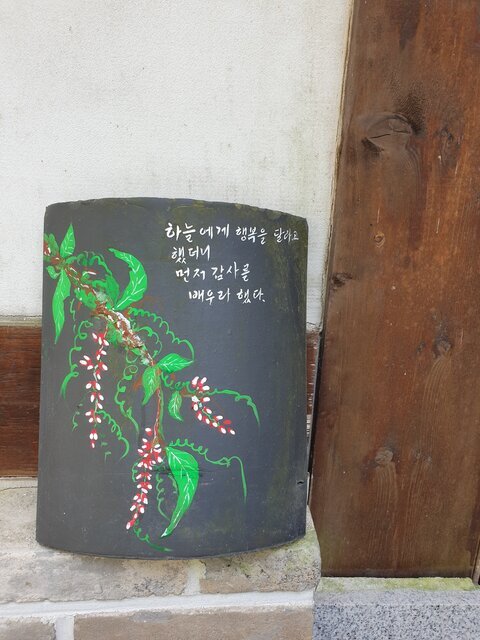 하늘에게 행복을 달라고
했더니
먼저 감사를
배우라 했다.